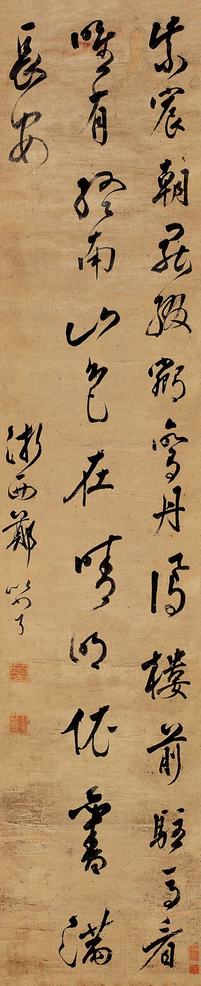 紫宸朝罷綴鵷鸞丹鳳樓前駐馬看
唯有終南山色在晴明依舊滿
長安
浙西鄭